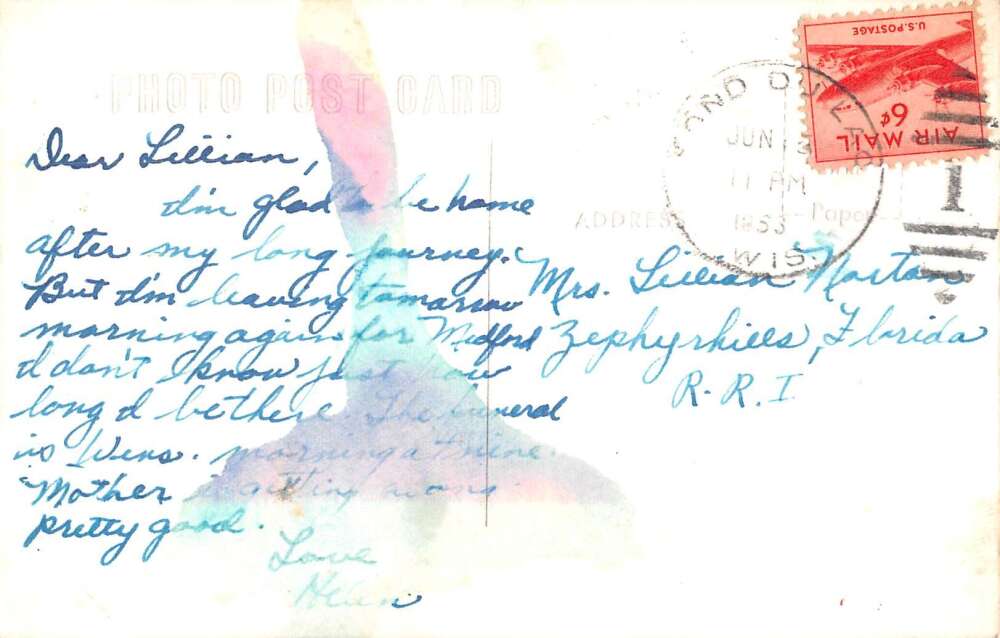 PHOTO POST CARD
U.S. POSTAGE
6¢
AIR MAIL
JUN 
11 PM
WIS.
1
ADDRESS
Paper
Dear Lillian,
I'm glad to be home
after my long journey.
But I'm leaving tomorrow
morning again for Medford
I don't know just how
long I be there. The funeral
is Wens. morning at nine.
Mother is getting along
pretty good.
Love
Helen
Mrs. Lillian Norton
Zephyrhills, Florida
R.R. I